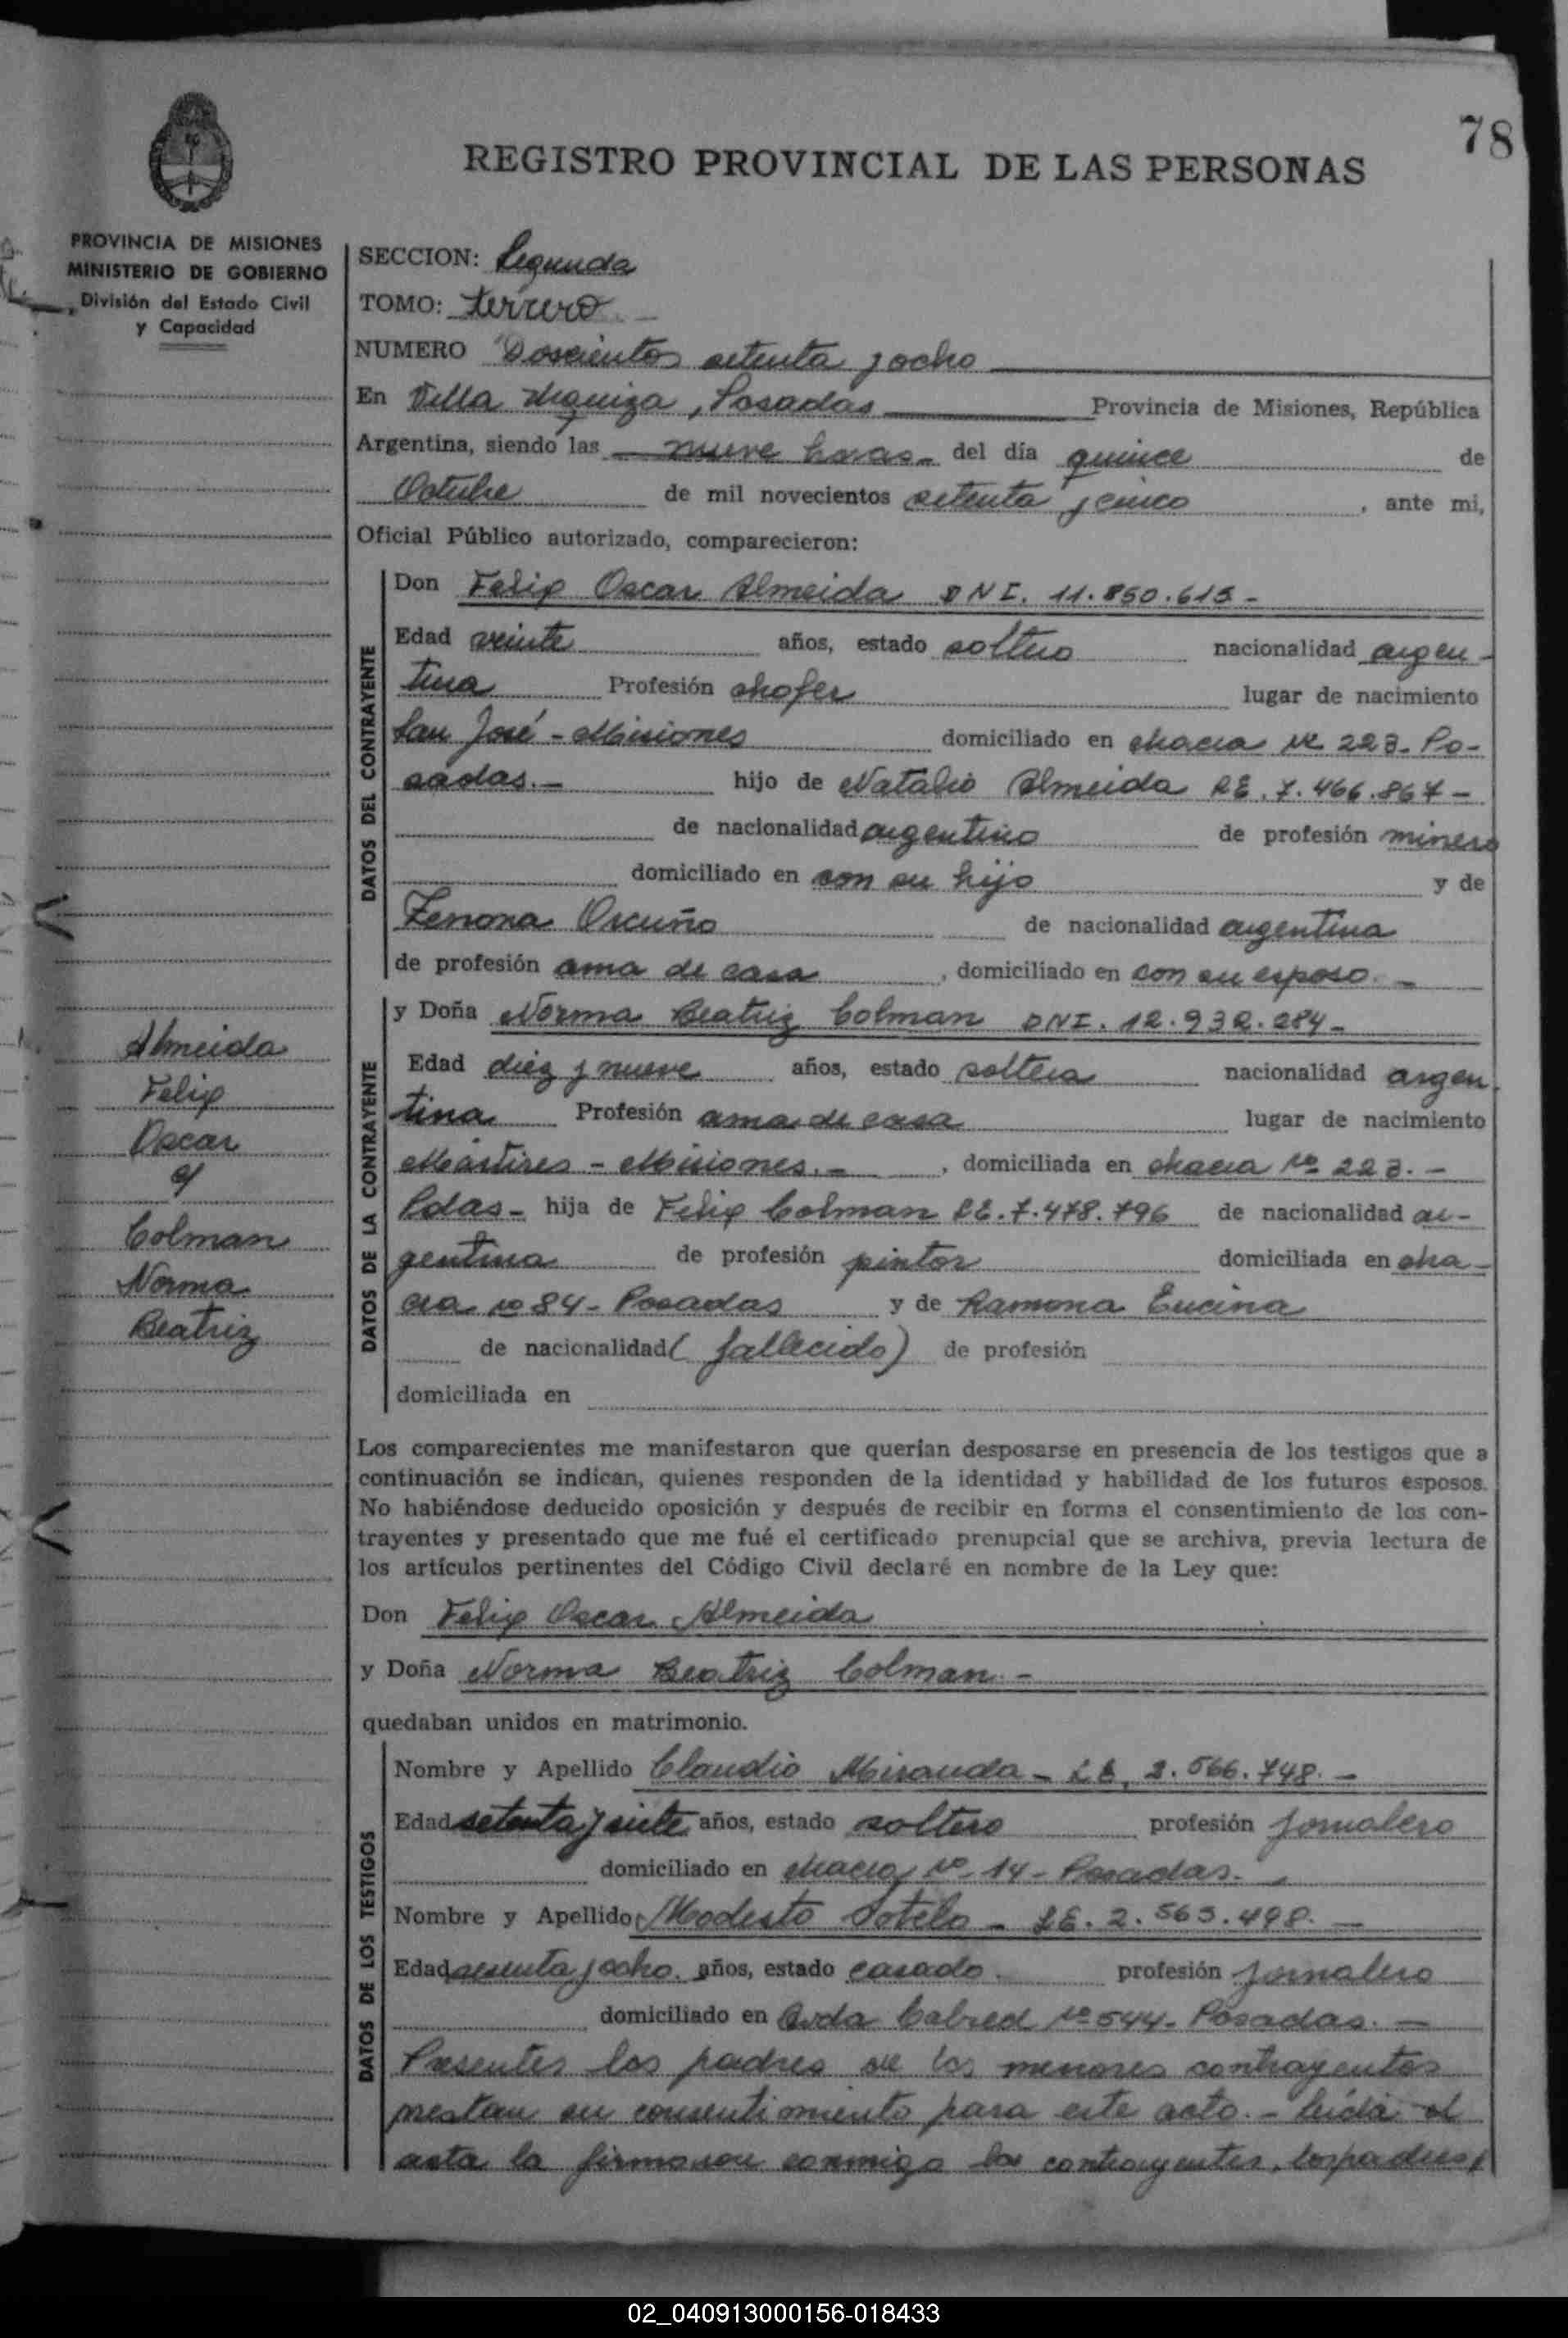 78
REGISTRO PROVINCIAL DE LAS PERSONAS
PROVINCIA DE MISIONES
MINISTERIO DE GOBIERNO
División del Estado Civil
y Capacidad
SECCION: Segunda
TOMO: tercero
NUMERO Doscientos setenta y ocho
En Villa Urquiza, Posadas Provincia de Misiones, República
Argentina, siendo las nueve horas - del día quince de
Octubre de mil novecientos setenta y cinco, ante mi,
Oficial Público autorizado, comparecieron:
DATOS DEL CONTRAYENTE
Don Felix Oscar Almeida DNI. 11.850.615-
Edad veinte años, estado soltero nacionalidad argen-
tina Profesión chofer lugar de nacimiento
San José - Misiones domiciliado en chacra Nº 223. Po-
sadas.- hijo de Natalio Almeida LE. 7.466.867-
de nacionalidad argentino de profesión minero
domiciliado en con su hijo y de
Zenona Oscuño de nacionalidad argentina
de profesión ama de casa, domiciliado en con su esposo. -
DATOS DE LA CONTRAYENTE
y Doña Norma Beatriz Colman DNI. 12.932.284-
Edad diez y nueve años, estado soltera nacionalidad argen-
tina Profesión ama de casa lugar de nacimiento
Mártires - Misiones.-, domiciliada en chacra Nº 223. -
Pdas- hija de Felix Colman LE. 7.478.796 de nacionalidad ar-
gentina de profesión pintor domiciliada en cha-
cra nº 84 - Posadas y de Ramona Encina
de nacionalidad (fallecido) de profesión
domiciliada en
Almeida
Felix
Oscar
c/
Colman
Norma
Beatriz
Los comparecientes me manifestaron que querían desposarse en presencia de los testigos que a
continuación se indican, quienes responden de la identidad y habilidad de los futuros esposos.
No habiéndose deducido oposición y después de recibir en forma el consentimiento de los con-
trayentes y presentado que me fué el certificado prenupcial que se archiva, previa lectura de
los artículos pertinentes del Código Civil declaré en nombre de la Ley que:
Don Felix Oscar Almeida
y Doña Norma Beatriz Colman -
quedaban unidos en matrimonio.
DATOS DE LOS TESTIGOS
Nombre y Apellido Claudio Miranda - LE. 2.566.748. -
Edad setenta y siete años, estado soltero profesión jornalero
domiciliado en chacra nº 14 - Posadas. -
Nombre y Apellido Modesto Sotelo - LE. 2.563.498. -
Edad sesenta y ocho. años, estado casado. profesión jornalero
domiciliado en Avda Cabred nº 544. Posadas. -
Presentes los padres de los menores contrayentes
prestan su consentimiento para este acto. - Leída el
acta la firmaron conmigo los contrayentes, los padres,
02_040913000156-018433